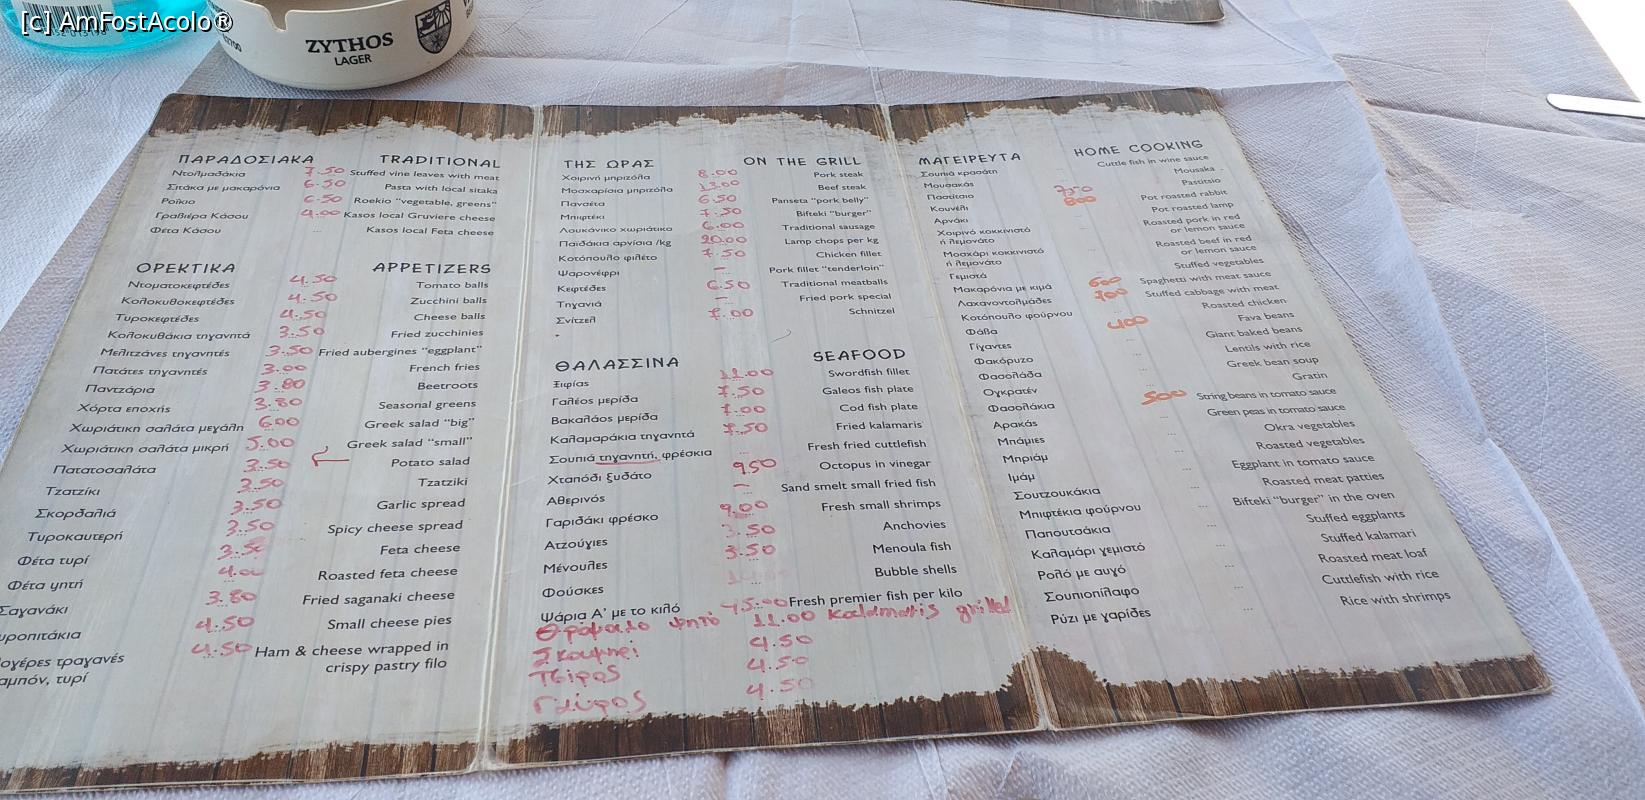 [c] AmFostAcolo®
ZYTHOS
LAGER
ΠΑΡΑΔΟΣΙΑΚΑ TRADITIONAL
Ντολμαδάκια 7.50 Stuffed vine leaves with meat
Σιτάκα με μακαρόνια 6.50 Pasta with local sitaka
Ροίκιο 6.50 Roekio "vegetable, greens"
Γραβιέρα Κάσου 4.00 Kasos local Gruviere cheese
Φέτα Κάσου ... Kasos local Feta cheese
ΟΡΕΚΤΙΚΑ APPETIZERS
Ντοματοκεφτέδες 4.50 Tomato balls
Κολοκυθοκεφτέδες 4.50 Zucchini balls
Τυροκεφτέδες 4.50 Cheese balls
Κολοκυθάκια τηγανητά 3.50 Fried zucchinies
Μελιτζάνες τηγανητές 3.50 Fried aubergines "eggplant"
Πατάτες τηγανητές 3.00 French fries
Παντζάρια 3.80 Beetroots
Χόρτα εποχής 3.80 Seasonal greens
Χωριάτικη σαλάτα μεγάλη 6.00 Greek salad "big"
Χωριάτικη σαλάτα μικρή 5.00 Greek salad "small"
Πατατοσαλάτα 3.50 Potato salad
Τζατζίκι 3.50 Tzatziki
Σκορδαλιά 3.50 Garlic spread
Τυροκαυτερή 3.50 Spicy cheese spread
Φέτα τυρί 3.50 Feta cheese
Φέτα ψητή 4.00 Roasted feta cheese
Σαγανάκι 3.80 Fried saganaki cheese
υροπιτάκια 4.50 Small cheese pies
ογέρες τραγανές 4.50 Ham & cheese wrapped in
αμπόν, τυρί crispy pastry filo
ΤΗΣ ΩΡΑΣ ON THE GRILL
Χοιρινή μπριζόλα 8.00 Pork steak
Μοσχαρίσια μπριζόλα 13.00 Beef steak
Πανσέτα 6.50 Panseta "pork belly"
Μπιφτέκι 7.50 Bifteki "burger"
Λουκάνικο χωριάτικο 6.00 Traditional sausage
Παϊδάκια αρνίσια /kg 20.00 Lamp chops per kg
Κοτόπουλο φιλέτο 7.50 Chicken fillet
Ψαρονέφρι – Pork fillet "tenderloin"
Κεφτέδες 6.50 Traditional meatballs
Τηγανιά – Fried pork special
Σνίτζελ 7.00 Schnitzel
ΘΑΛΑΣΣΙΝΑ SEAFOOD
Ξιφίας 11.00 Swordfish fillet
Γαλέος μερίδα 7.50 Galeos fish plate
Βακαλάος μερίδα 7.00 Cod fish plate
Καλαμαράκια τηγανητά 7.50 Fried kalamaris
Σουπιά τηγανητή, φρέσκια ... Fresh fried cuttlefish
Χταπόδι ξυδάτο 9.50 Octopus in vinegar
Αθερινός – Sand smelt small fried fish
Γαριδάκι φρέσκο 9.00 Fresh small shrimps
Ατζούγιες 3.50 Anchovies
Μένουλες 3.50 Menoula fish
Φούσκες Bubble shells
Ψάρια Α' με το κιλό 45.00 Fresh premier fish per kilo
Θράψαλο ψητό 11.00 Kalamaris grilled
Σκουμπρί 4.50
Τσίρος 4.50
Γαύρος 4.50
ΜΑΓΕΙΡΕΥΤΑ HOME COOKING
Σουπιά κρασάτη Cuttle fish in wine sauce
Μουσακάς 7.50 Mousaka
Παστίτσιο 8.00 Pastitsio
Κουνέλι ... Pot roasted rabbit
Αρνάκι ... Pot roasted lamp
Χοιρινό κοκκινιστό Roasted pork in red
ή λεμονάτο or lemon sauce
Μοσχάρι κοκκινιστό Roasted beef in red
ή λεμονάτο or lemon sauce
Γεμιστά Stuffed vegetables
Μακαρόνια με κιμά 6.00 Spaghetti with meat sauce
Λαχανοντολμάδες 7.00 Stuffed cabbage with meat
Κοτόπουλο φούρνου Roasted chicken
Φάβα 4.00 Fava beans
Γίγαντες Giant baked beans
Φακόρυζο Lentils with rice
Φασολάδα Greek bean soup
Ογκρατέν Gratin
Φασολάκια 5.00 String beans in tomato sauce
Αρακάς Green peas in tomato sauce
Μπάμιες Okra vegetables
Μπριάμ Roasted vegetables
Ιμάμ Eggplant in tomato sauce
Σουτζουκάκια Roasted meat patties
Μπιφτέκια φούρνου Bifteki "burger" in the oven
Παπουτσάκια Stuffed eggplants
Καλαμάρι γεμιστό Stuffed kalamari
Ρολό με αυγό Roasted meat loaf
Σουπιονίλαφο Cuttlefish with rice
Ρύζι με γαρίδες Rice with shrimps